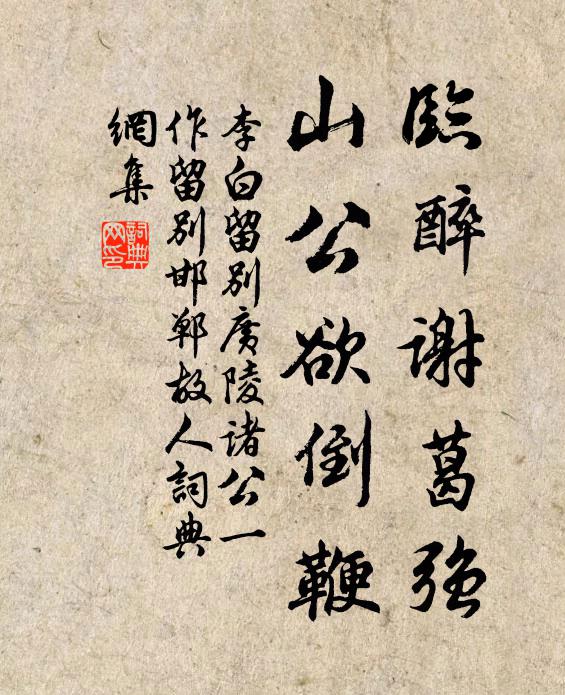 臨醉謝葛強
山公欲倒鞭
李白留別廣陵諸公一
作留別邯鄲故人詞典
網集
詞典
网印